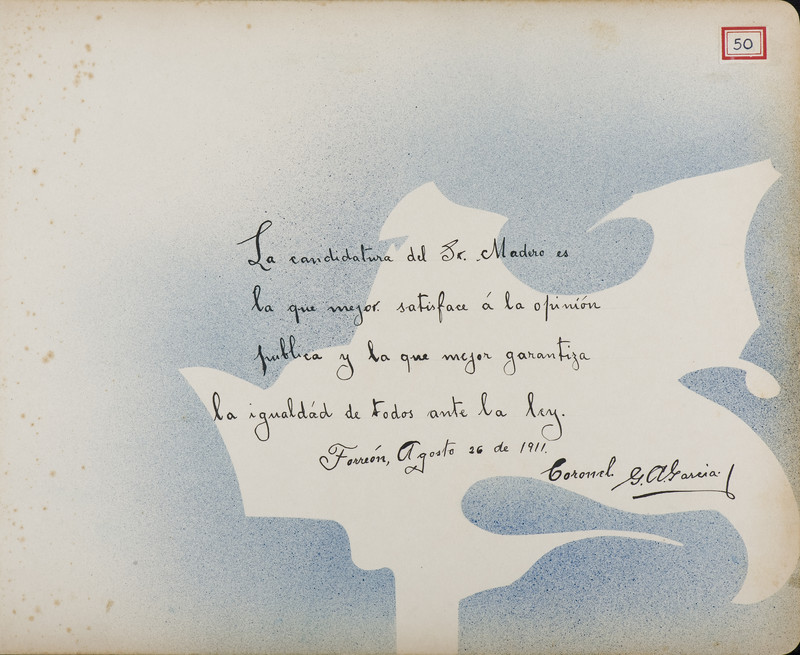 50
La candidatura del Sr. Madero es
la que mejor satisface á la opinión
publica y la que mejor garantiza
la igualdád de todos ante la ley.
Torreón, Agosto 26 de 1911.
Coronel G. A Garcia